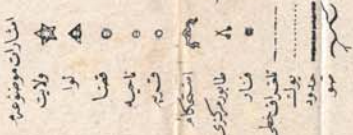 اشارات موضوعه
ولايت
لوا
قضا
ناحيه
قريه
استحكام
طابور مركزى
فنار
تلغراف خطى
يول
حدود
نهر